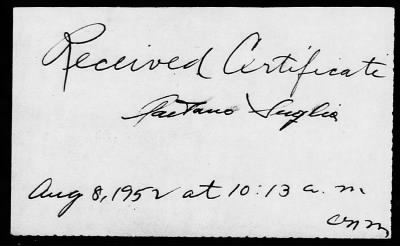 Received Certificate
Gaetano Suglia
Aug 8, 1952 at 10:13 a.m
cnm